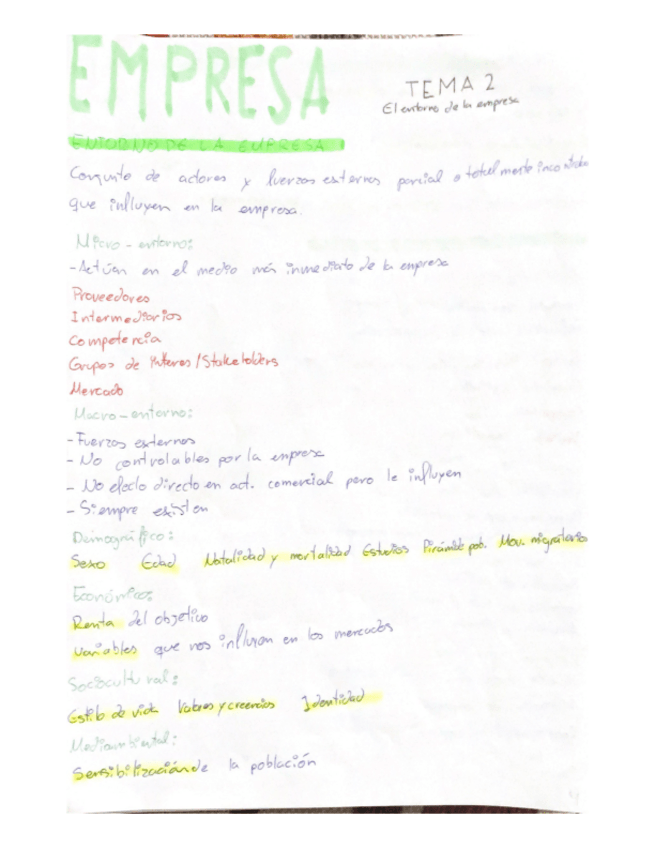 EMPRESA
TEMA 2
El entorno de la empresa
ENTORNO DE LA EMPRESA
Conjunto de actores y fuerzas externas parcial o totalmente
que influyen en la empresa.
Micro-entorno:
-Actúan en el medio más inmediato de la empresa
Proveedores
Intermediarios
Competencia
Grupos de interes/Stakeholders
Mercado
Macro-entorno:
-Fuerzas externas
- No controlables por la empresa
- No efecto directo en act. comercial pero le influyen
- Siempre existen
Demográfico:
Sexo Edad Natalidad y mortalidad Estudios Pirámide pob. Mov. migratorios
Económico:
Renta del objetivo
Variables que nos influyan en los mercados
Sociocultural:
Estilo de vida Valores y creencias Identidad
Medioambiental:
Sensibilización de la población